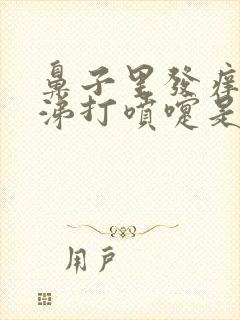 鼻子里發痒
涕打噴嚏是
用戶